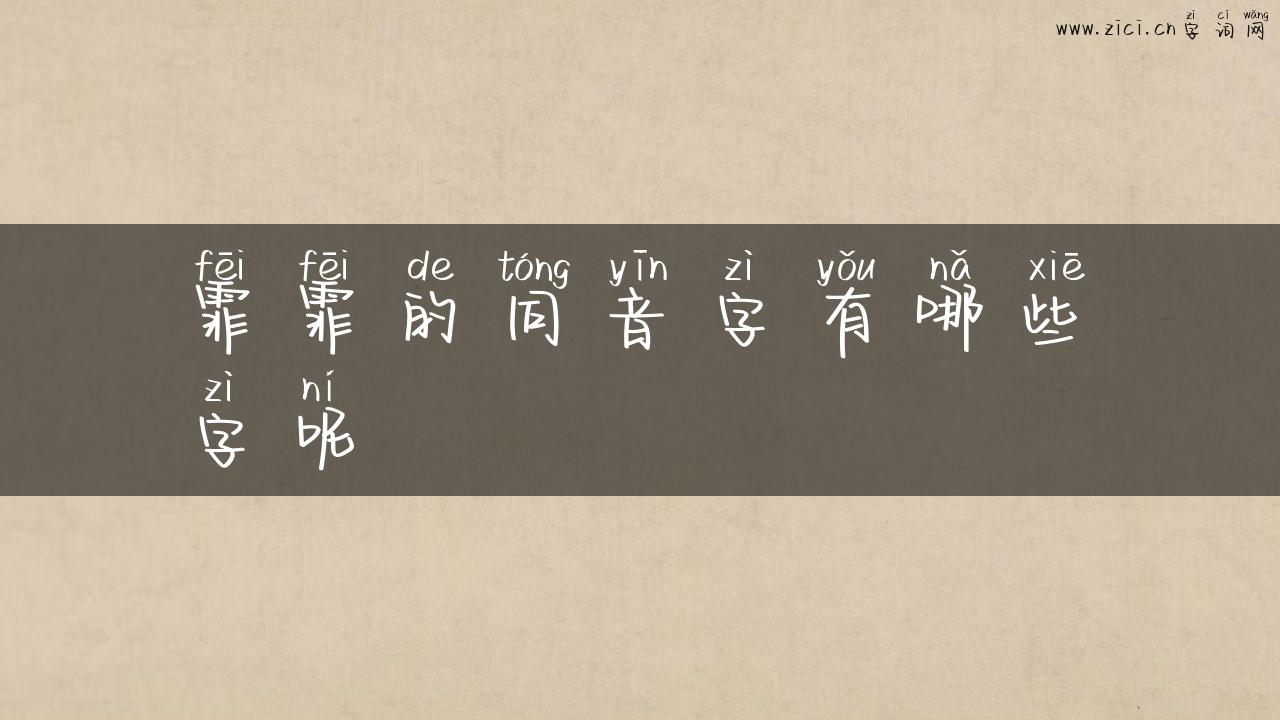 zì cí wǎng
www.zici.cn 字词网
fēi fēi de tóng yīn zì yǒu nǎ xiē
霏霏的同音字有哪些
zì ní
字呢